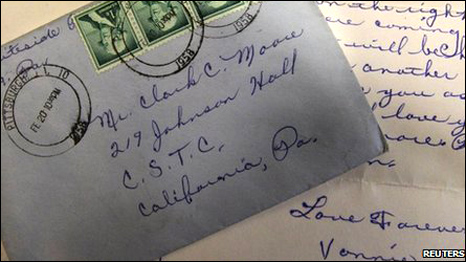 iteside
Pa.
PITTSBURGH
FE 20 10 PM
1958
1958
1958
Mr. Clark C. Moore
219 Johnson Hall
C. S. T. C.
California, Pa.
on the right
are coming
will be
another
you
love y
Love Forever
Vonnie
REUTERS